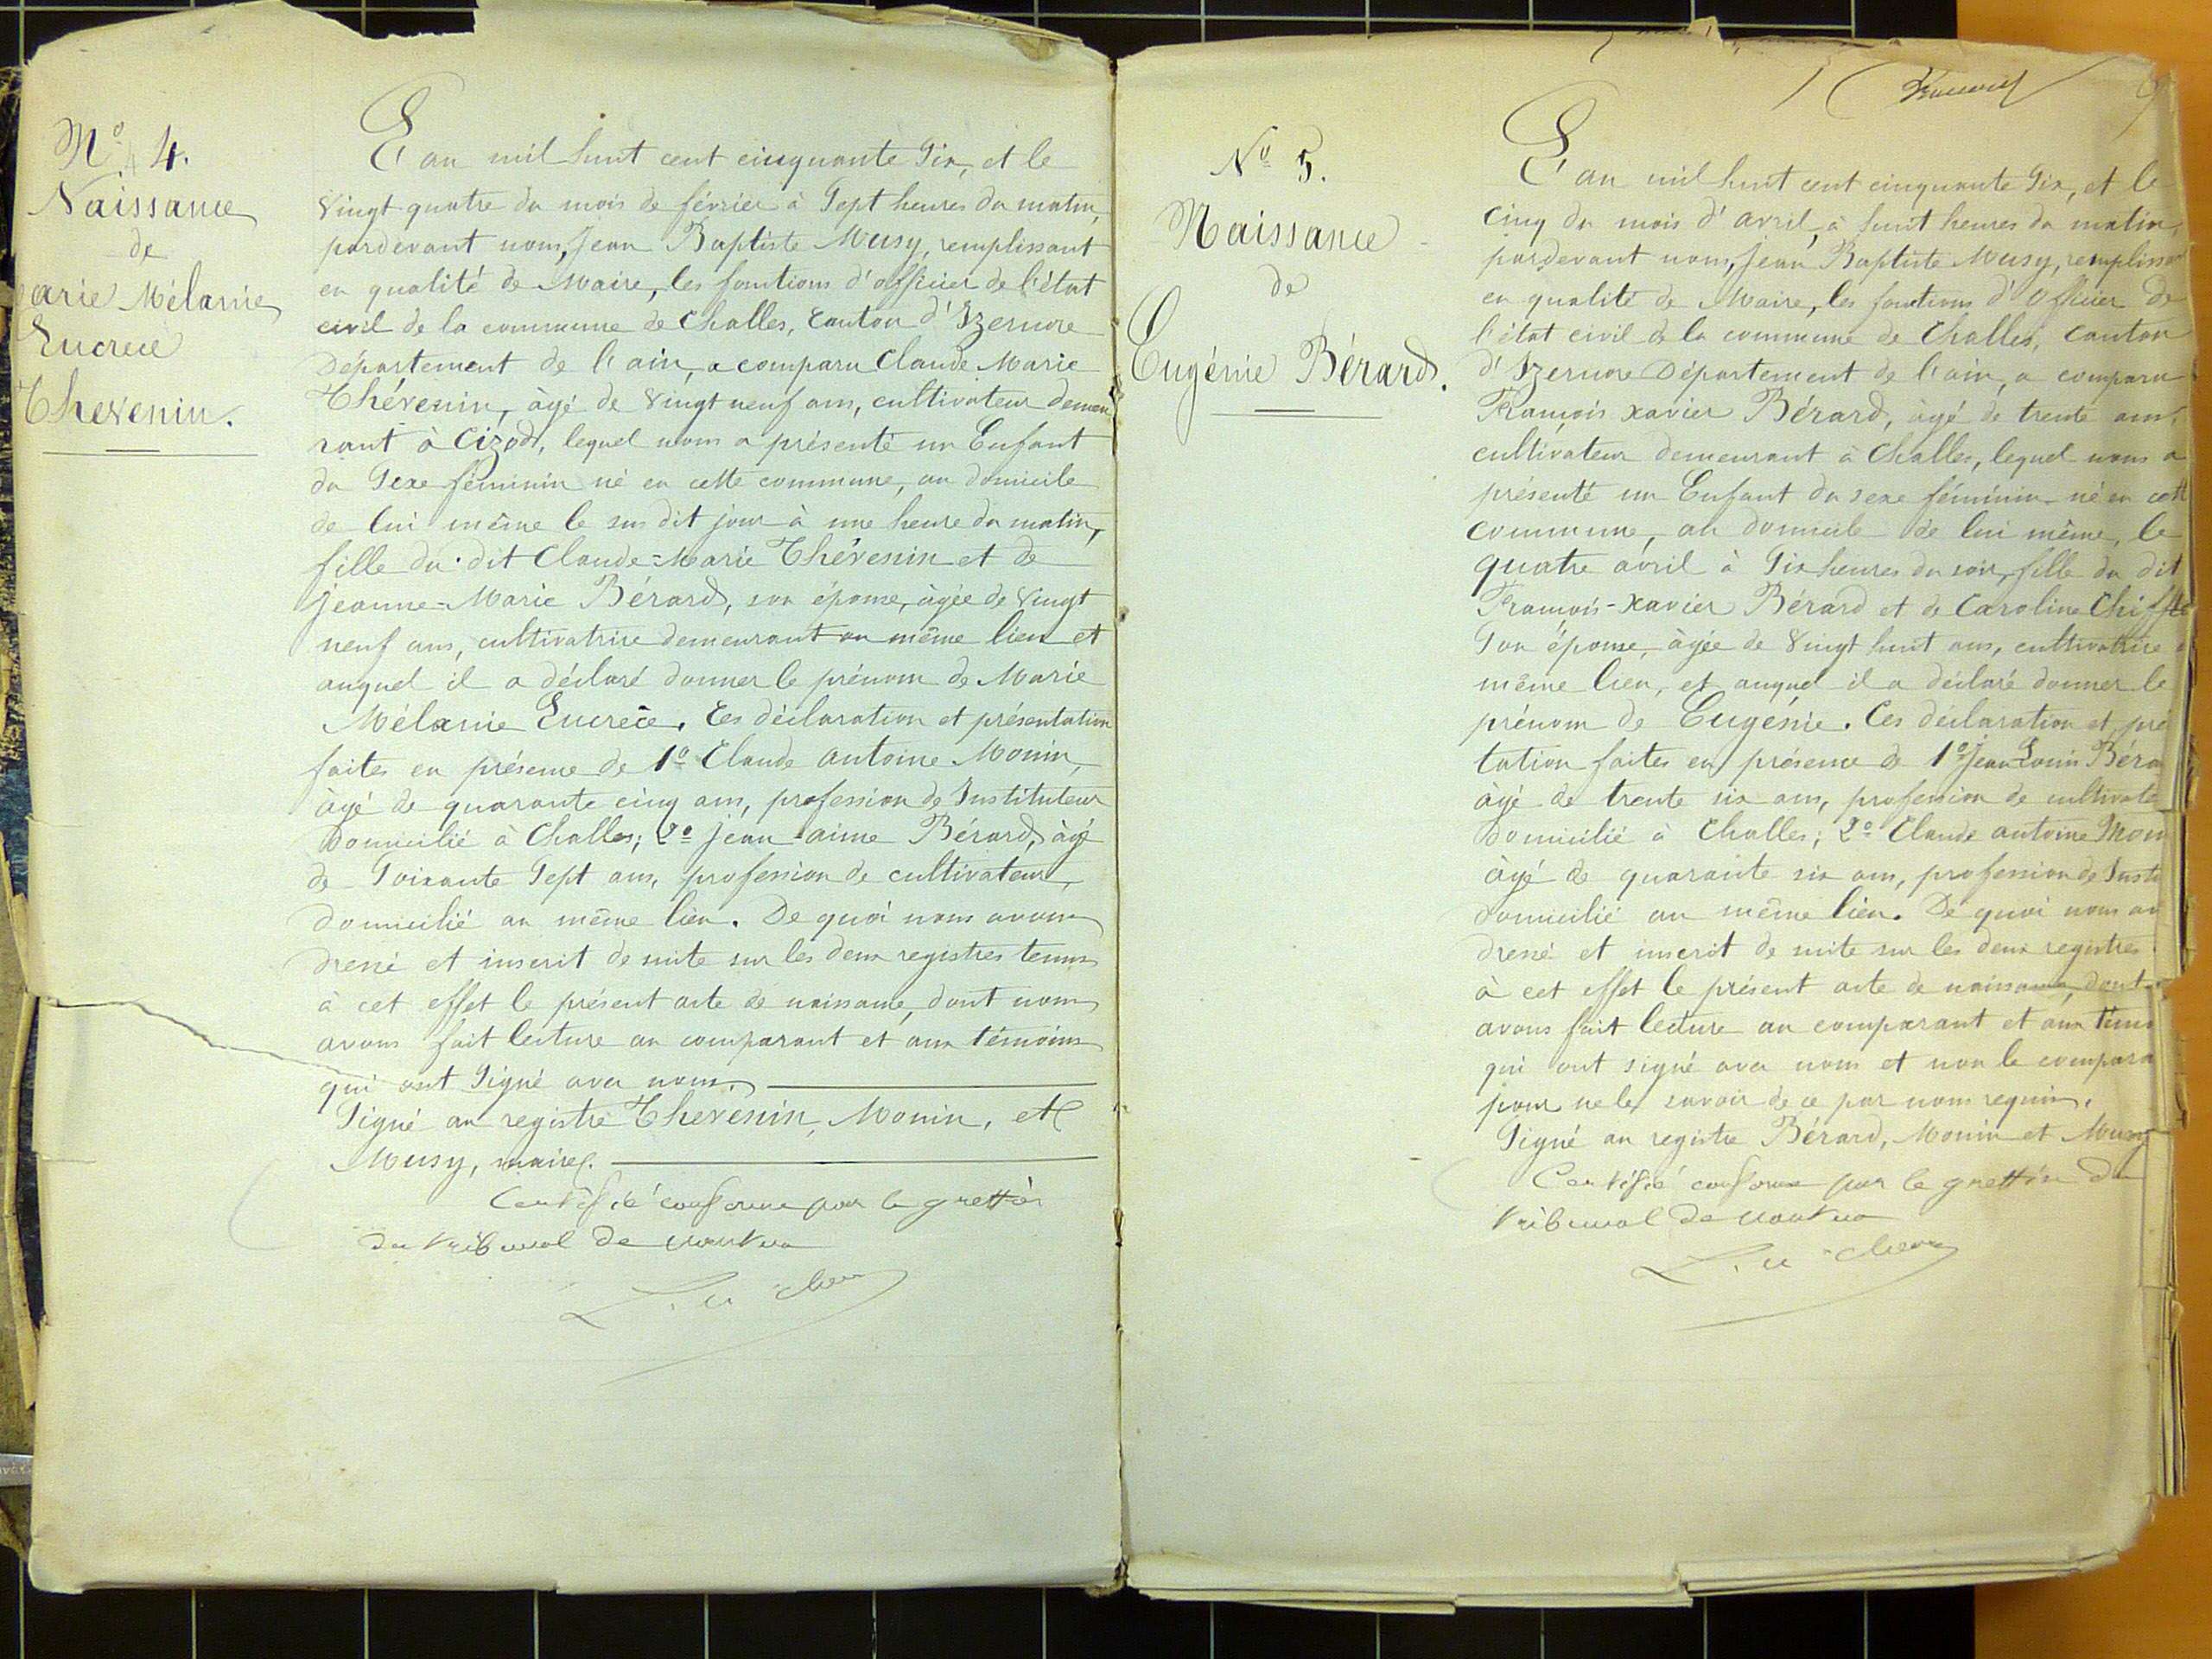 N° 4.
Naissance
de
arie Mélanie
Lucrece
Thevenin.
L'an mil huit cent cinquante six, et le
vingt quatre du mois de février à sept heures du matin,
pardevant nous, Jean Baptiste Musy, remplissant
en qualité de Maire, les fonctions d'officier de l'état
civil de la commune de Challes, canton d'Izernore
Département de l'ain, a comparu Claude Marie
Thévenin, âgé de vingt neuf ans, cultivateur demeu
rant à Cizod, lequel nous a présenté un Enfant
du sexe féminin né en cette commune, au domicile
de lui même le sus dit jour à une heure du matin,
fille du dit Claude-Marie Thévenin et de
Jeanne-Marie Bérard, son épouse, âgée de vingt
neuf ans, cultivatrice demeurant au même lieu et
auquel il a déclaré donner le prénom de Marie
Mélanie Lucrèce. Ces déclaration et présentation
faites en présence de 1° Claude antoine Monin,
âgé de quarante cinq ans, profession de Instituteur
domicilié à Challes; 2° Jean aimé Bérard, âgé
de soixante sept ans, profession de cultivateur,
domicilié au même lieu. De quoi nous avons
dressé et inscrit de suite sur les deux registres tenus
à cet effet le présent acte de naissance, dont nous
avons fait lecture au comparant et aux témoins
qui ont signé avec nous.
Signé au registre Thevenin, Monin, et
Musy, maire.
Certifié conforme par le greffier
du tribunal de nantua
N° 5.
Naissance
de
Eugénie Bérard.
L'an mil huit cent cinquante six, et le
cinq du mois d'avril, à huit heures du matin,
pardevant nous, Jean Baptiste Musy, rempliss
en qualité de Maire, les fonctions d'Officier de
l'état civil de la commune de Challes, canton
d'Izernore Département de l'ain, a comparu
François xavier Bérard, âgé de trente ans,
cultivateur demeurant à Challes, lequel nous a
présenté un Enfant du sexe féminin né en cett
commune, au domicile de lui même, le
quatre avril à six heures du soir, fille du dit
François-Xavier Bérard et de Caroline Chiff
son épouse, âgée de vingt huit ans, cultivatrice
même lieu, et auquel il a déclaré donner le
prénom de Eugénie. Ces déclaration et pré
tation faites en présence de 1° Jean Louis Béra
âgé de trente six ans, profession de cultivate
domicilié à Challes; 2° Claude antoine Mon
âgé de quarante six ans, profession de Insti
domicilié au même lieu. De quoi nous av
dressé et inscrit de suite sur les deux registres
à cet effet le présent acte de naissance, dont
avons fait lecture au comparant et aux témo
qui ont signé avec nous et non le compara
pour ne le savoir de ce par nous requis.
Signé au registre Bérard, Monin et Musy
Certifié conforme par le greffier du
tribunal de nantua